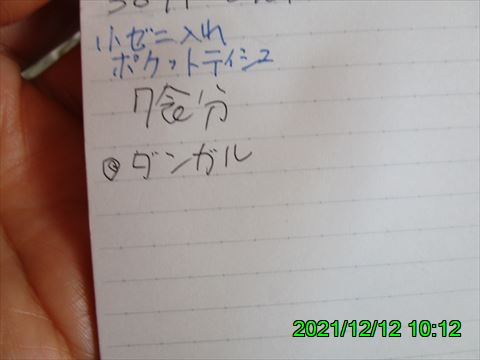 小ゼニ入れ
ポケットティシュ
7食分
◎ダンガル
2021/12/12 10:12